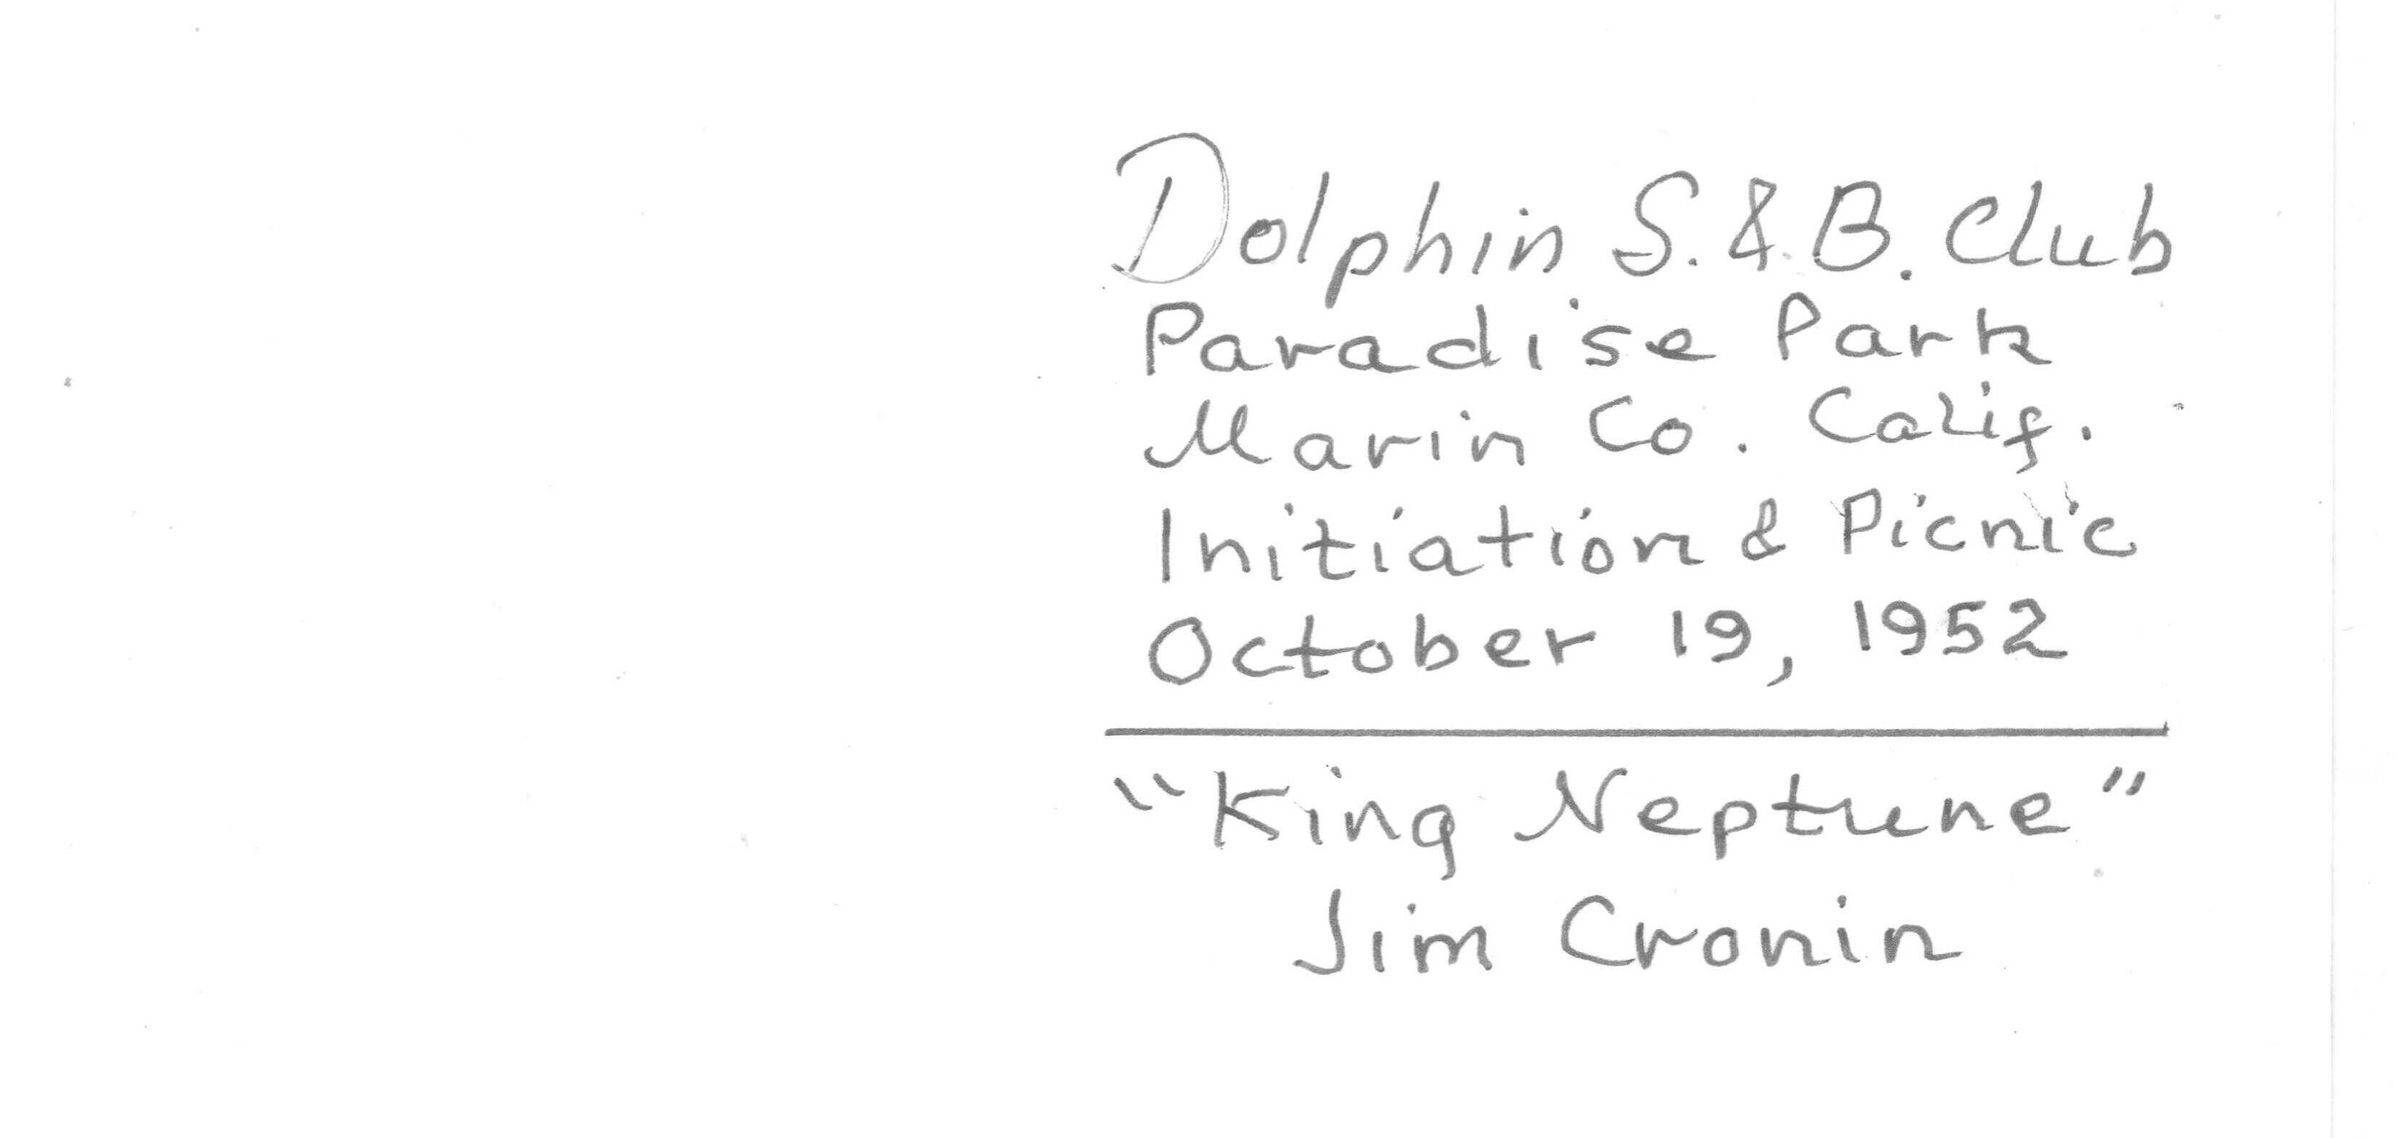 Dolphin S. & B. Club
Paradise Park
Marin Co. Calif.
Initiation & Picnic
October 19, 1952
"King Neptune"
Jim Cronin